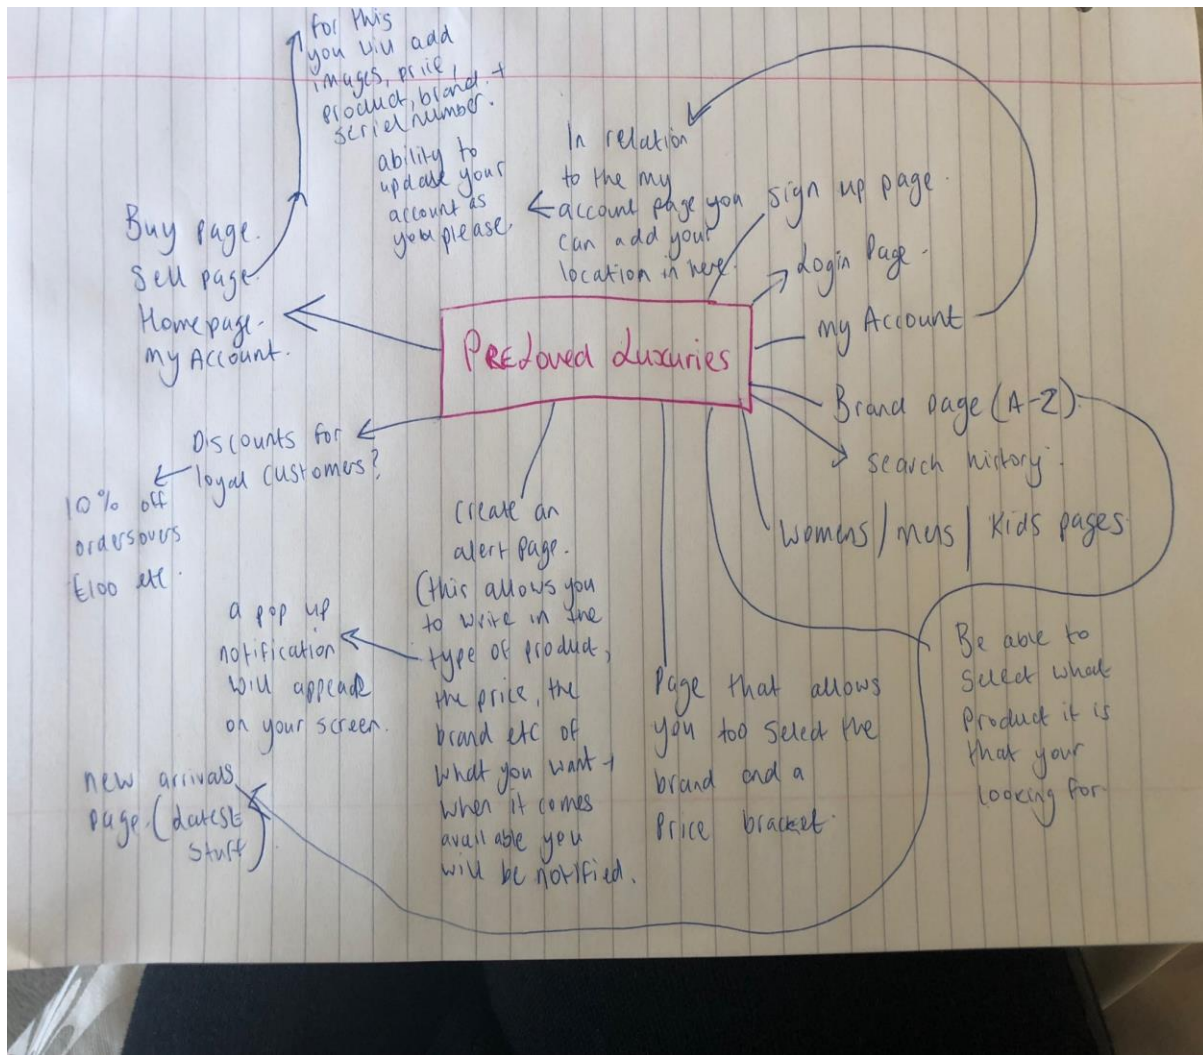 for this
you will add
images, price,
product, brand +
serial number.
ability to
update your
account as
you please.
In relation
to the my
account page you
can add your
location in here.
sign up page.
Login Page.
my Account
Brand page (A-Z).
search history.
womens/mens/kids pages
Buy page.
Sell page.
Homepage.
my Account.
PRELoved Luxuries
Discounts for
loyal customers?
10% off
ordersovers
£100 etc.
create an
alert page.
(this allows you
to write in the
type of product,
the price, the
brand etc of
what you want +
when it comes
available you
will be notified.
a pop up
notification
will appeade
on your screen.
new arrivals
page. (latest
stuff)
Page that allows
you too select the
brand and a
Price bracket.
Be able to
select what
product it is
that your
looking for.